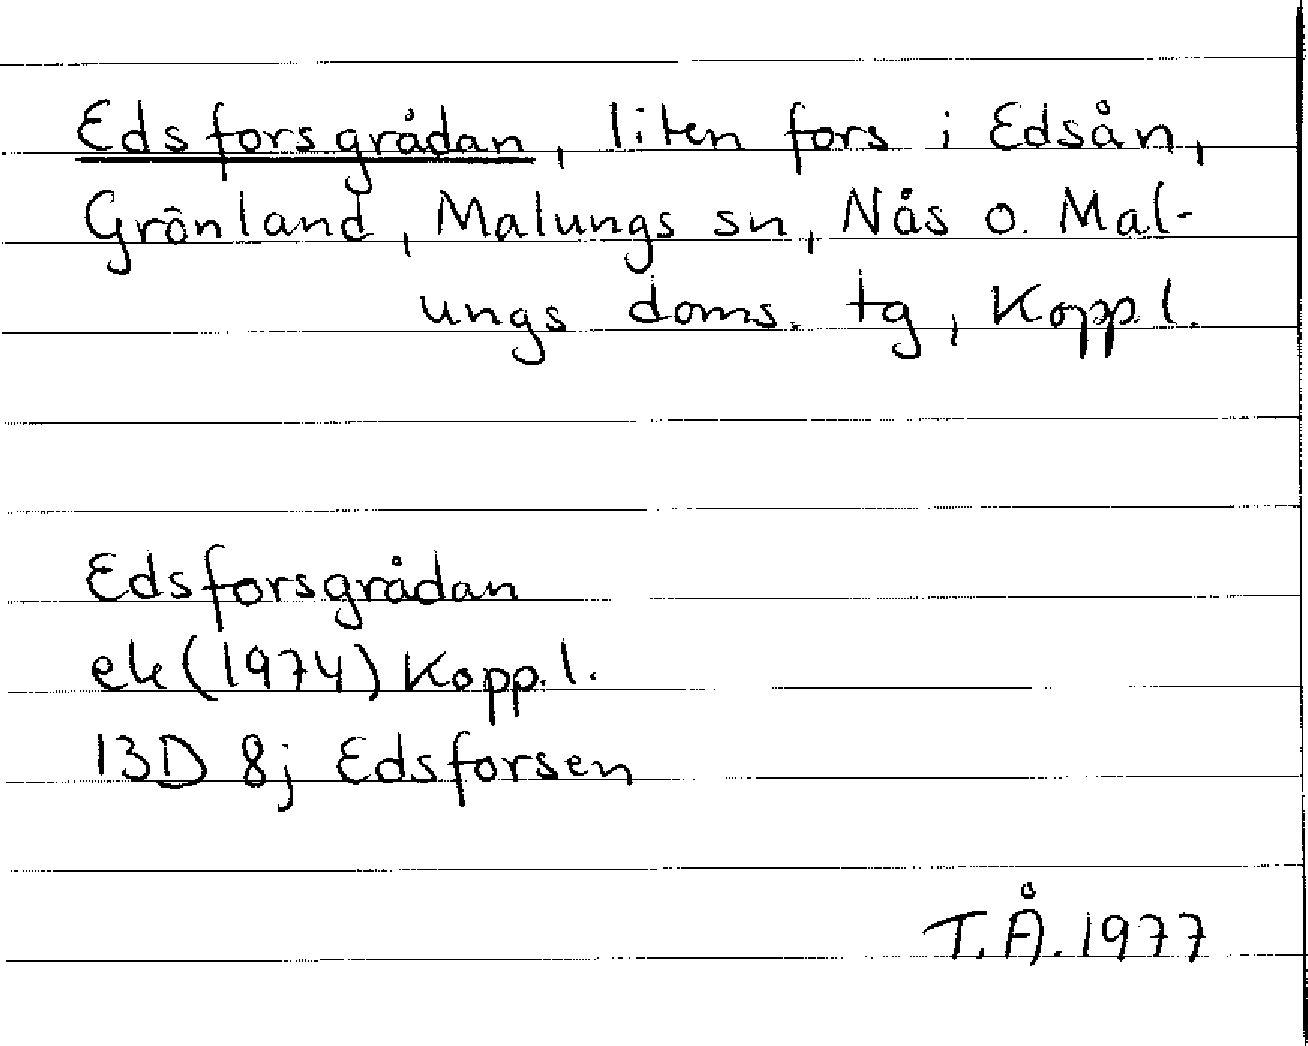 Edsforsgrådan, liten fors i Edsån,
Grönland, Malungs sn, Nås o. Mal-
ungs doms. tg, Kopp l.
Edsforsgrådan
ek (1974) Kopp. l.
13D 8j Edsforsen
T.Å. 1977